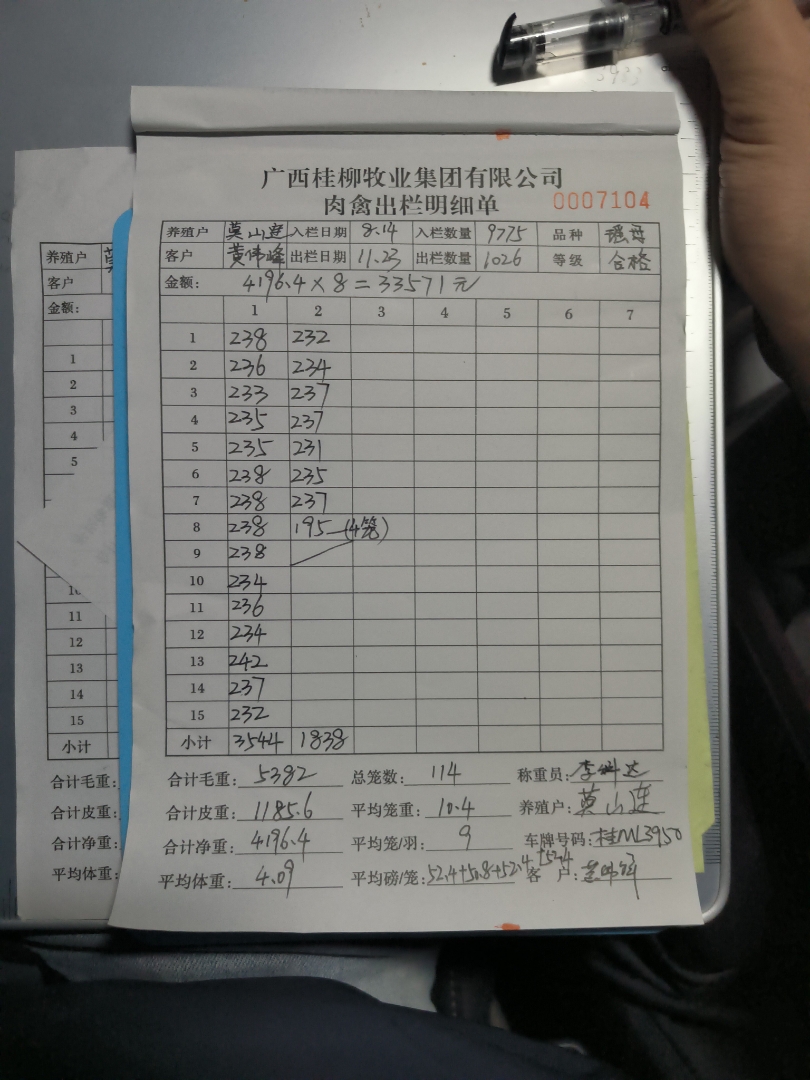 3983
广西桂柳牧业集团有限公司
肉禽出栏明细单 0007104
养殖户 莫山连 入栏日期 8.14 入栏数量 9775 品种
客户 黄伟峰 出栏日期 11.23 出栏数量 1026 等级 合格
金额: 4196.4×8=33571元
1 2 3 4 5 6 7
1 238 232
2 236 234
3 233 237
4 235 237
5 235 231
6 238 235
7 238 237
8 238 195-(4笼)
9 238
10 234
11 236
12 234
13 242
14 237
15 232
小计 3544 1838
合计毛重: 5382 总笼数: 114 称重员:
合计皮重: 1185.6 平均笼重: 10.4 养殖户: 莫山连
合计净重: 4196.4 平均笼/羽: 9 车牌号码: 桂ML3950
平均体重: 4.09 平均磅/笼: 52.4+50.8+52.4+52.4 客户:
养殖户
客户
金额:
1
2
3
4
5
11
12
13
14
15
小计
合计毛重:
合计皮重:
合计净重:
平均体重: